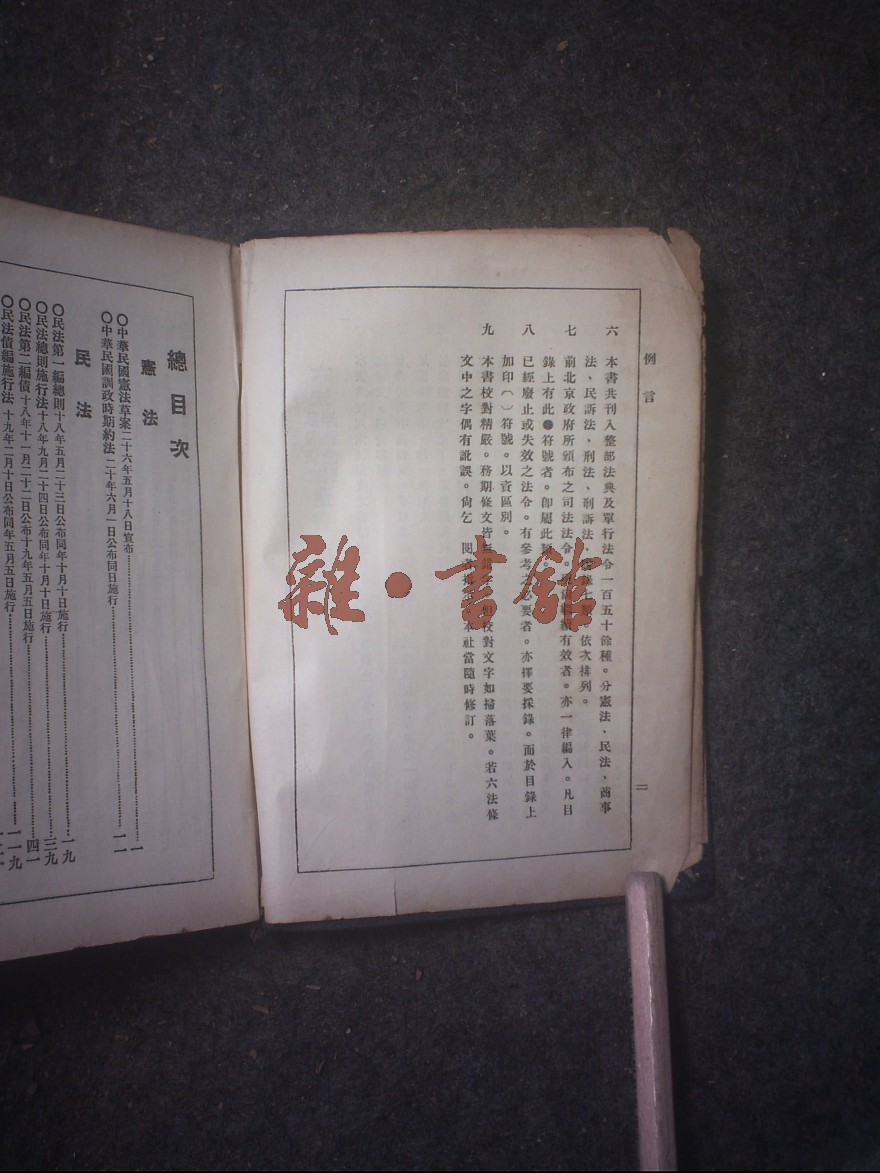 例言
六 本書共刊入整部法典及單行法令一百五十餘種。分憲法、民法、商事
法、民訴法、刑法、刑訴法、依次排列。
七 前北京政府所頒布之司法法令。有效者。亦一律編入。凡目
錄上有此●符號者。卽屬此
八 已經廢止或失效之法令。有參考之必要者。亦擇要採錄。而於目錄上
加印〔〕符號。以資區別。
九 本書校對精嚴。務期條文皆無錯字。校對文字如掃落葉。若六法條
文中之字偶有訛誤。尙乞 閱者 本社當隨時修訂。
二
總目次
憲法
○中華民國憲法草案二十六年五月十八日宣布……一
○中華民國訓政時期約法二十年六月一日公布同日施行……一一
民法
○民法第一編總則十八年五月二十三日公布同年十月十日施行……一九
○民法總則施行法十八年九月二十四日公布同年十月十日施行……三九
○民法第二編債十八年十一月二十二日公布十九年五月五日施行……四一
○民法債編施行法十九年二月十日公布同年五月五日施行……一一九
雜·書館